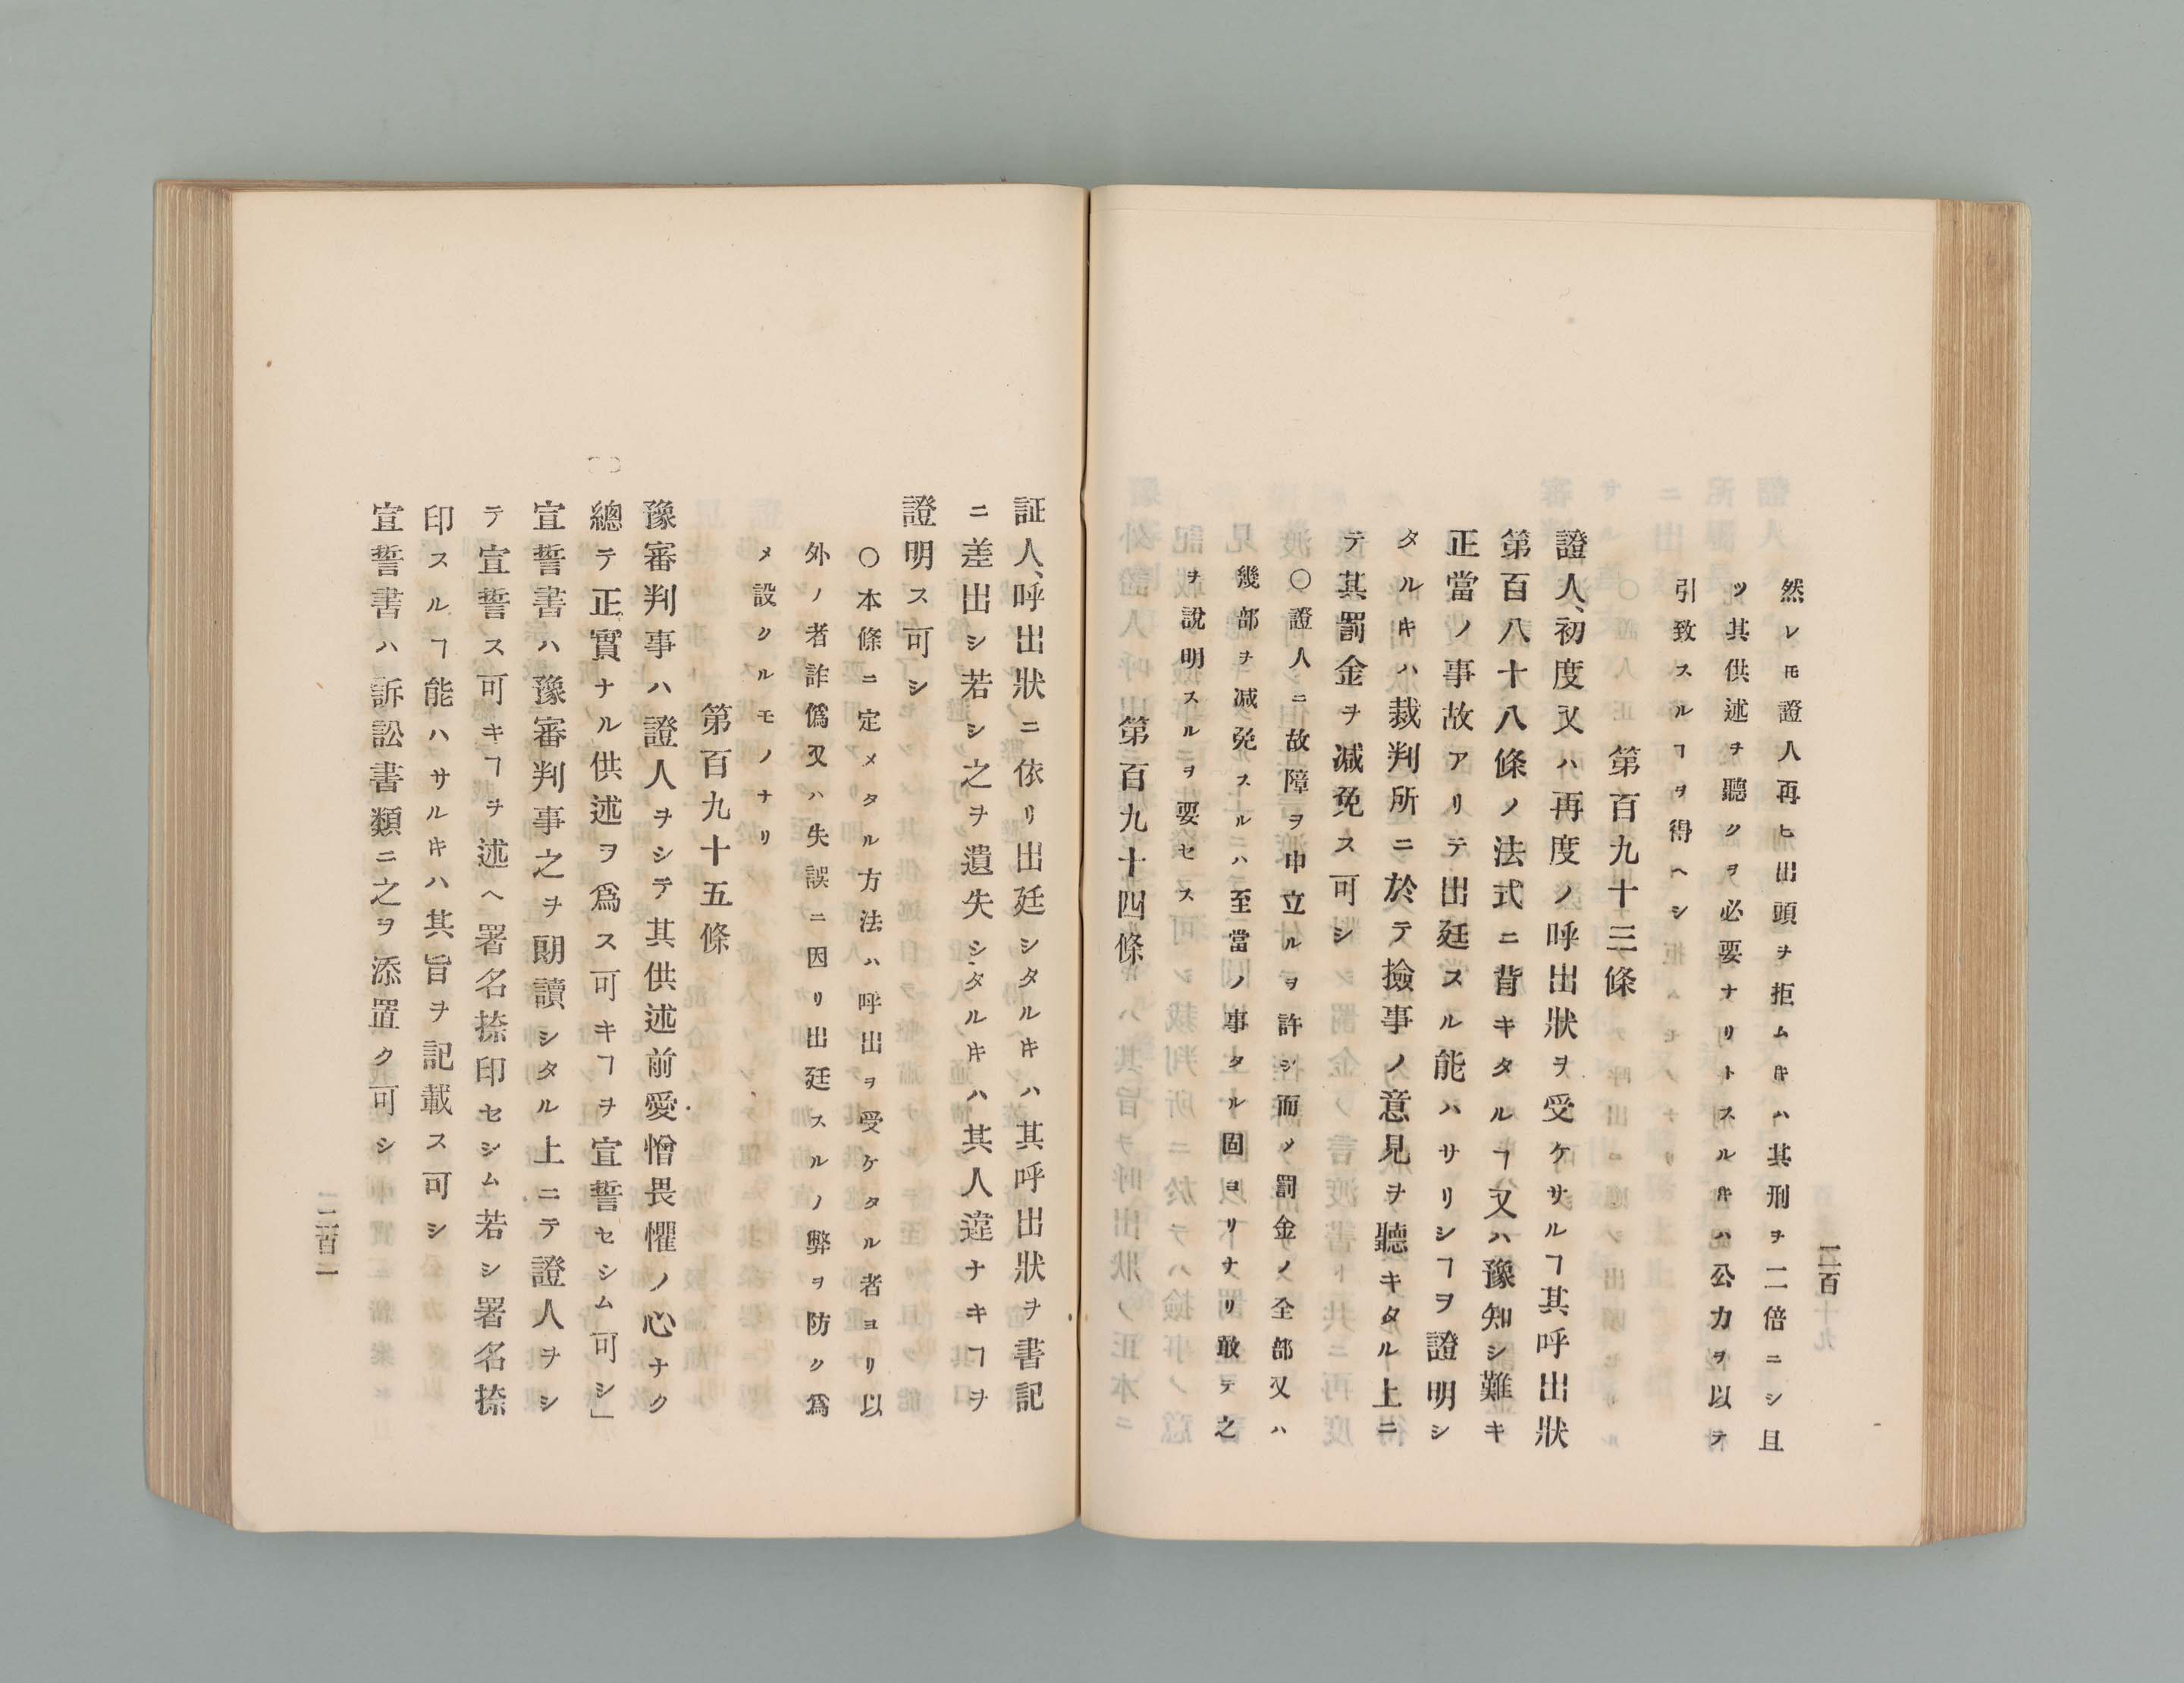 然レ𪜈證人再ヒ出頭ヲ拒ムキハ其刑ヲ二倍ニシ且
ツ其供述ヲ聽クヲ必要ナリトスルキハ公力ヲ以テ
引致スルヿヲ得ヘシ
第百九十三條
證人、初度又ハ再度ノ呼出狀ヲ受ケサルヿ其呼出狀
第百八十八條ノ法式ニ背キタルヿ又ハ豫知シ難キ
正當ノ事故アリテ出廷スル能ハサリシヿヲ證明シ
タルキハ裁判所ニ於テ撿事ノ意見ヲ聽キタル上ニ
テ其罰金ヲ減免ス可シ
〇證人ニ故障ヲ申立ルヲ許シ而メ罰金ノ全部又ハ
幾部ヲ减免スルハ至當ノ事タル固ヨリナリ敢テ之
ヲ說明スルヲ要セス
第百九十四條
二百
証人、呼出狀ニ依リ出廷シタルキハ其呼出狀ヲ書記
ニ差出シ若シ之ヲ遺失シタルキハ其人違ナキヿヲ
證明ス可シ
〇本條ニ定メタル方法ハ呼出ヲ受ケタル者ヨリ以
外ノ者詐僞又ハ失誤ニ因リ出廷スルノ弊ヲ防ク爲
メ設クルモノナリ
第百九十五條
豫審判事ハ證人ヲシテ其供述前愛憎畏懼ノ心ナク
總テ正實ナル供述ヲ爲ス可キヿヲ宣誓セシム可シ」
宣誓書ハ豫審判事之ヲ朗讀シタル上ニテ證人ヲシ
テ宣誓ス可キヿヲ述ヘ署名捺印セシム若シ署名捺
印スルヿ能ハサルキハ其旨ヲ記載ス可シ
宣誓書ハ訴訟書類ニ之ヲ添置ク可シ
二百一